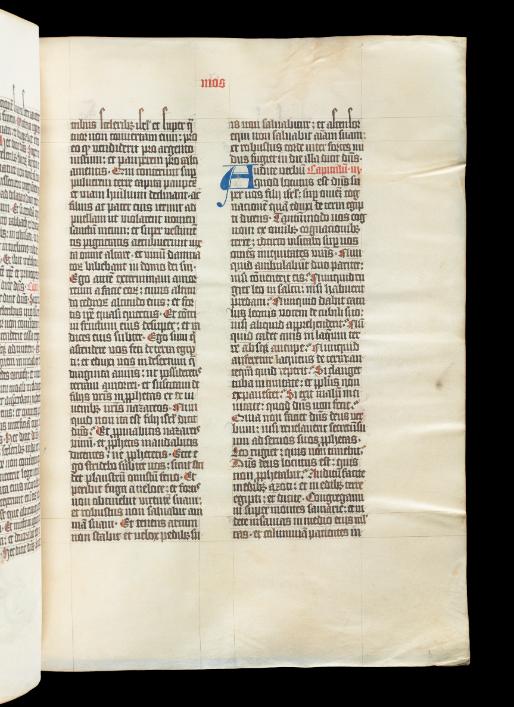 mos
tribus sceleribꝫ isrl̃ et super q̃
tuor non convertam eum: pro
eo qꝫ vendiderit pro argento
iustum: et pauperem pro cal
ciamentis. Qui conterunt sup̃
pulverem terre capita paupeꝝ:
et viam humilium declinant. ac
filius ac pater eius ierunt ad
puellam ut violarent nomen
sanctum meum: et super vestimẽ
tis pigneratis accubuerunt iux
ta omne altare: et vinũ damna
toꝝ bibebant in domo dei sui.
Ego autẽ exterminavi amor
reum a facie eoꝝ: cuius altitu
do cedroꝝ altitudo eius: et for
tis ip̃e quasi quercus. Et cõtri
vi fructum eius desuper: et ra
dices eius subter. Ego sum q̃
ascendere vos feci de terra egip
ti: et eduxi vos in deserto
quadraginta annis: ut possideretis
terram amorrei. et suscitavi de
filiis vr̃is in prophetas et de iu
venibꝫ vr̃is nazareos. Nun
quid non ita est filii isrl̃ dicit
dñs. Et propinabitis nazareis
vinũ. et prophetis mandabitis
dicentes: ne prophetetis. Ecce e
go stridebo subter vos: sicut stri
det plaustrũ onustũ feno. Et
peribit fuga a veloce: et fortis
non obtinebit virtutẽ suam:
et robustus non salvabit ani
mã suam. Et tenens arcum
non stabit et velox pedibꝫ su
is non salvabitur: et ascensor
equi non salvabit aĩam suam:
et robustus corde inter fortes nu
dus fugiet in die illa dicit dñs.
Audite verbũ Capitulũ iij.
quod locutus est dñs su
per vos filii isrl̃: super omnẽ cog
nacionẽ quã eduxi de terra egip
ti dicens. Tantũmodo vos cog
novi ex omibꝫ cognacionibꝫ
terre: idcirco visitabo sup̃ vos
omnes iniquitates vr̃as. Nun
quid ambulabũt duo pariter:
nisi cõvenerit eis. Nunquid ru
giet leo in saltu: nisi habuerit
predam. Nunquid dabit catu
lus leonis vocem de cubili suo:
nisi aliquid apprehenderit. Nũ
quid cadet avis in laqueũ ter
re absqꝫ aucupe. Nunquid
auferetur laqueus de terra an
tequã quid ceperit. Si clanget
tuba in civitate: et populus non
expavescet. Si erit malũ in ci
vitate: quod dñs non fecit.
Quia non faciet dñs deus ver
bum: nisi revelaverit secretũ su
um ad servos suos prophetas.
Leo rugiet: quis non timebit.
Dñs deus locutus est: quis
non prophetabit. Auditũ facite
in edibꝫ azoti: et in edibꝫ terre
egipti: et dicite. Congregami
ni super montes samarie: et vi
dete insanias in medio eius ml̃
tas. et calumniã patientes in